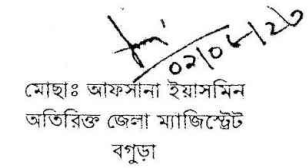 ০২/০৮/২৩
মোছাঃ আফসানা ইয়াসমিন
অতিরিক্ত জেলা ম্যাজিস্ট্রেট
বগুড়া